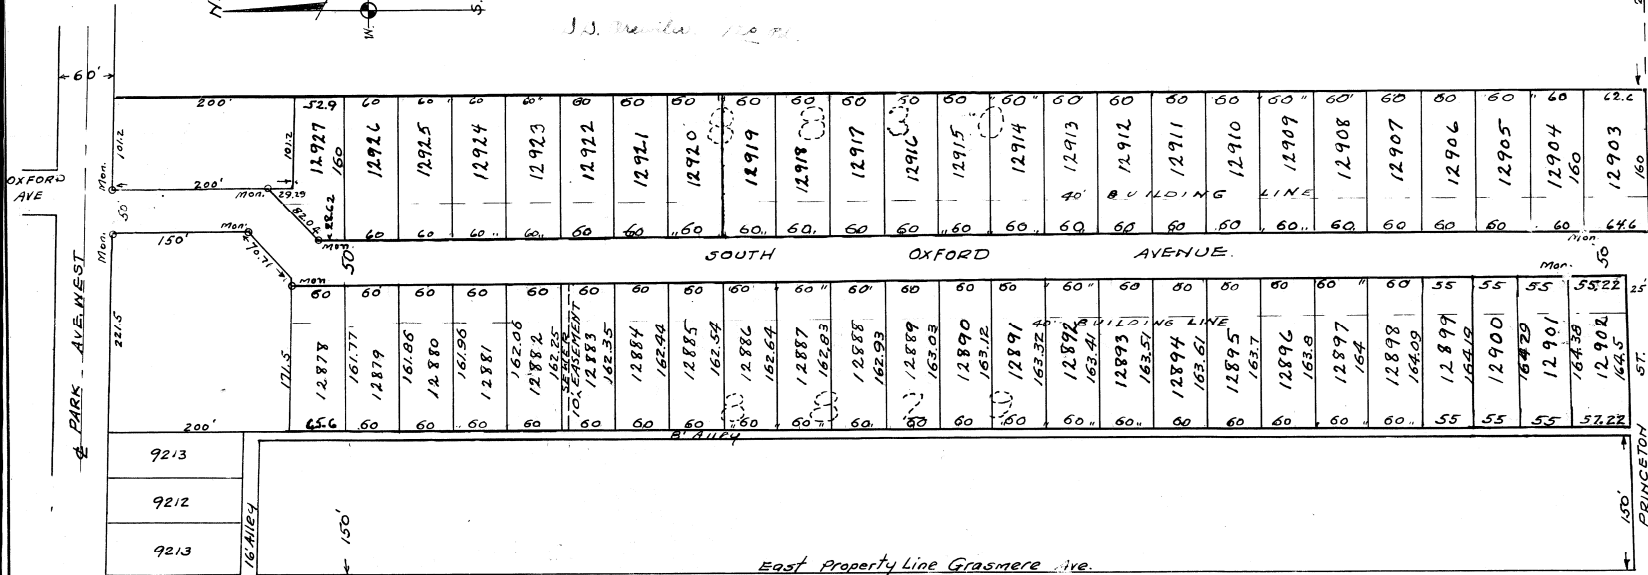 N.
W.
S.
60'
200' 52.9 60 60 60 60" 60 60 60 60 60 60 50 60 60" 60' 60 60 60 60" 60' 60 60 60 60 62.6
101.2 101.2
12927 12926 12925 12924 12923 12922 12921 12920 12919 12918 12917 12916 12915 12914 12913 12912 12911 12910 12909 12908 12907 12906 12905 12904 12903
160 160 160
OXFORD
AVE
Mon. 200' Mon. 29.29 28.62
82.04
40' BUILDING LINE
50'
60 60 60 60 60 60 60 60 60 60 60 60 60 60 60 60 60 60 60 60 60 60 60 64.6
Mon. 150' Mon. Mon. Mon.
70.71
50' SOUTH OXFORD AVENUE. 50'
Mon. Mon.
60 60 60 60 60 60 60 60 60 60" 60" 60 60 60 60" 60 60 60 60 60" 60 55 55 55 55.22 25'
40' BUILDING LINE
221.5
171.5 12878
161.77 12879
161.86 12880
161.96 12881
162.06 12882
162.25
SEWER
10' EASEMENT
12883 162.35
12884 162.44
12885 162.54
12886 162.64
12887 162.83
12888 162.93
12889 163.03
12890 163.12
12891 163.32
12892 163.41
12893 163.51
12894 163.61
12895 163.7
12896 163.8
12897 164
12898 164.09
12899 164.19
12900 164.29
12901 164.38
12902 164.5
200' 65.6 60 60 60 60 60 60 60 60 60 60 60 60 60 60 60 60 60 60 60 60 55 55 55 57.22
8' Alley
℄ PARK AVE, WEST
PRINCETON ST.
9213
9212
9213
16' Alley
150' 150'
East Property Line Grasmere Ave.